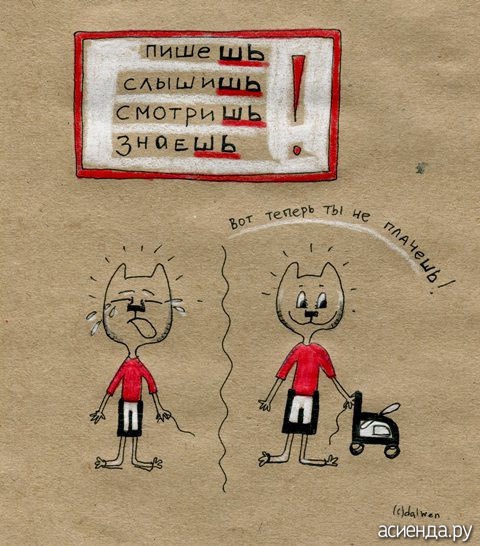 пишешь
слышишь
смотришь
знаешь
!
Вот теперь ты не плачешь!
(c)dalwen
асиенда.ру